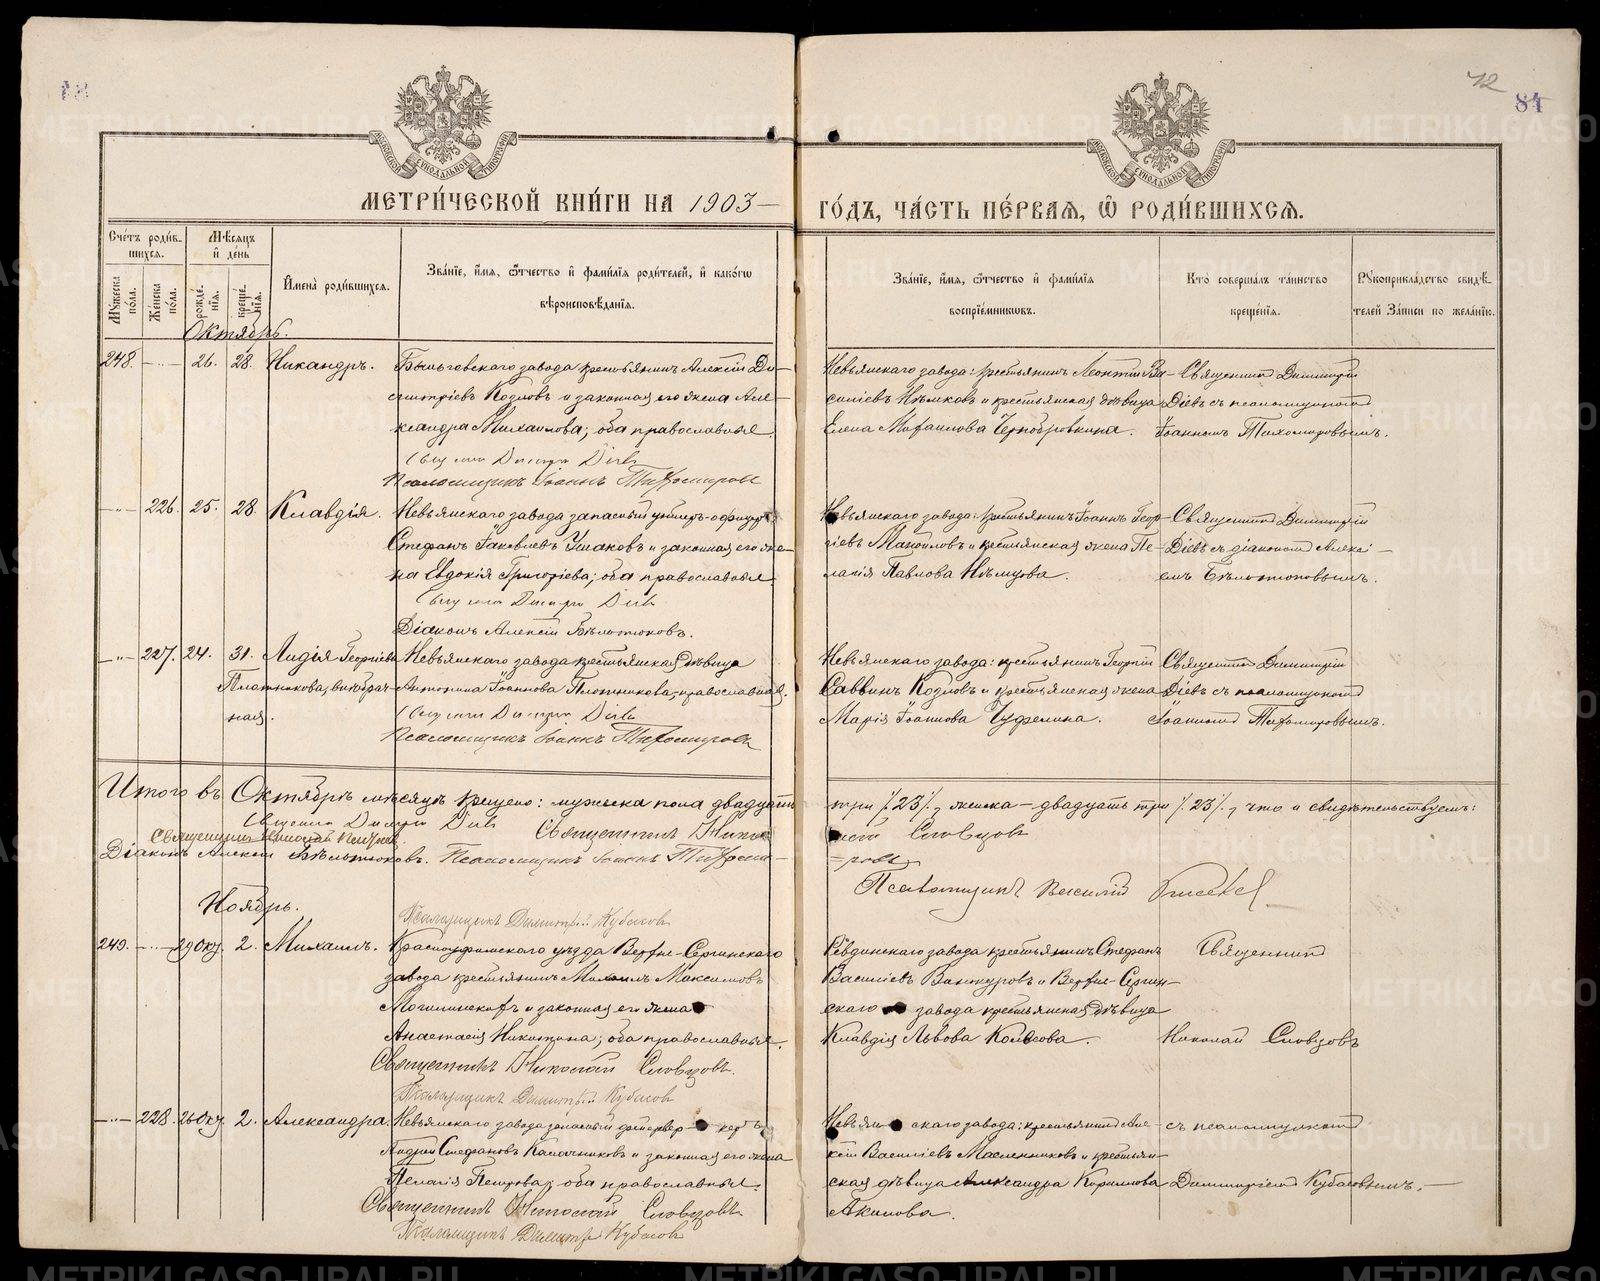 72
84
МЕТРИ́ЧЕСКОЙ КНИ́ГИ НА 1903 —
ГО́ДЪ, ЧА́СТЬ ПЕ́РВАѦ, Ѽ РОДИ́ВШИХСѦ.
Сче́тъ роди́в-
шихсѧ.
Мꙋ́жеска по́ла.
Же́нска по́ла.
Мѣ́сѧцъ
и де́нь
рожде́нїѧ.
креще́нїѧ.
Имена̀ роди́вшихсѧ.
Зва́нїе, и́мѧ, ѻ҆́тчество и фамі́лїѧ роди́телей, и како́гѡ
вѣроисповѣ́данїѧ.
Зва́нїе, и́мѧ, ѻ҆́тчество и фамі́лїѧ
воспрїе́мникѡвъ.
Кто̀ соверша́лъ та́инство
креще́нїѧ.
Рꙋкоприкла́дство свидѣ́-
телей За́писи по жела́нїю.
Октябрь.
248. — " — 26. 28. Никандръ.
завода крестьянинъ Алексій Ди-
митріевъ Козловъ и законная его жена Але-
ксандра Михаилова; оба православные.
Псаломщикъ Іоаннъ Тихомировъ
Невьянскаго завода: крестьянинъ Леонтій Ва-
силіевъ Нѣмковъ и крестьянская дѣвица
Елена Михаилова Чернобровкина.
Священникъ Димитрій
Діевъ съ псаломщикомъ
Іоанномъ Тихомировымъ.
— " — 226. 25. 28. Клавдія.
Невьянскаго завода запасный унтеръ-офицеръ
Стефанъ Іаковлевъ Ушаковъ и законная его же-
на Евдокія Григоріева; оба православные.
Діаконъ Алексій Бѣлотюковъ.
Невьянскаго завода: крестьянинъ Іоаннъ Геор-
гіевъ Манойловъ и крестьянская жена Пе-
лагія Павлова Нѣмцова.
Священникъ Димитрій
Діевъ съ діакономъ Алексі-
емъ Бѣлотюковымъ.
— " — 227. 24. 31. Лидія Георгіева
Плотникова, внѣбрач-
ная.
Невьянскаго завода крестьянская дѣвица
Антонина Іоаннова Плотникова, православная.
Псаломщикъ Іоаннъ Тихомировъ
Невьянскаго завода: крестьянинъ Георгій
Саввинъ Козловъ и крестьянская жена
Марія Іоаннова
Священникъ Димитрій
Діевъ съ псаломщикомъ
Іоанномъ Тихомировымъ.
Итого въ Октябрѣ мѣсяцѣ крещено: мужеска пола двадцать
три /23/, женска — двадцать три /23/, что и свидѣтельствуемъ:
Священникъ Николай Словцовъ
Діаконъ Алексій Бѣлотюковъ. Псаломщикъ Іоаннъ Тихоми-
ровъ
Псаломщикъ Василій
Ноябрь.
Псаломщикъ Димитрій Кубасовъ
249. — " — 29 Окт. 2. Михаилъ.
Красноуфимскаго уѣзда Верхне-Сергинскаго
завода крестьянинъ Михаилъ Максимовъ
и законная его жена
Анастасія Никитина; оба православные.
Священникъ Николай Словцовъ.
Псаломщикъ Димитрій Кубасовъ
Ревдинскаго завода крестьянинъ Стефанъ
Василіевъ Винокуровъ и Верхне-Сергин-
скаго завода крестьянская дѣвица
Клавдія Львова
Священникъ
Николай Словцовъ
— " — 228. 26 Окт. 2. Александра.
Невьянскаго завода запасный фейервер-керъ
Андрей Стефановъ Калачниковъ и законная его жена
Пелагія Петрова; оба православные.
Священникъ Николай Словцовъ
Псаломщикъ Димитрій Кубасовъ
Невьянскаго завода: крестьянинъ Але-
ксій Василіевъ Масленниковъ и крестьян-
ская дѣвица Александра Кириллова
Акилова.
съ псаломщикомъ
Димитріемъ Кубасовымъ. —
METRIKI.GASO-URAL.RU